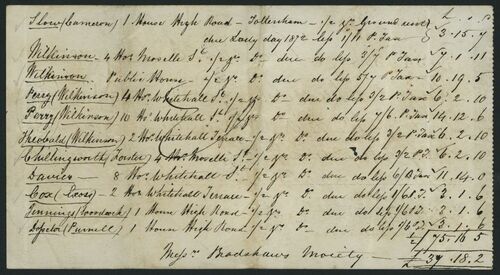 Slow (Cameron) 1 House High Road - Tottenham - 1/2 yr Ground rent
due Lady day 1872 less 1/11 P. Tax 3. 15. 7
Wilkinson - 4 Hos. Moselle St. 1/2 yr Do due do less 3/7 P. Tax 7. 1. 11
Wilkinson Public House - 1/2 yr Do due do less 5/7 P Tax - 10. 19. 5
Perry (Wilkinson) 4 Hos. Whitehall St. 1/2 yr Do - due do less 3/2 P. Tax 6. 2. 10
Perry (Wilkinson) 10 Hos. Whitehall St. 1/2 yr Do due do less 7/6 P. Tax 14. 12. 6
Theobald (Wilkinson) 2 Hos. Whitehall Terrace - 1/2 yr Do due do less 3/2 P. T. 6. 2. 10
Chillingworth (Forster) 4 Hos. Moselle St. - 1/2 yr Do due do less 3/2 P. T. 6. 2. 10
Davies - 8 Hos. Whitehall St. 1/2 yr Do due do less 6/ P. Tax 11. 14. 0
Cox (Cross) - 2 Hos. Whitehall Terrace - 1/2 yr Do due do less 1/6 P. T. 3. 1. 6
Jennings (Woodcock) 1 House High Road - 1/2 yr Do due do less 1/6 3. 1. 6
(Purnell) 1 House High Road - 1/2 yr Do due do less 1/6 3. 1. 6
1/2 75. 16. 5
Messrs. Bradshaws Moiety - 37. 18. 2